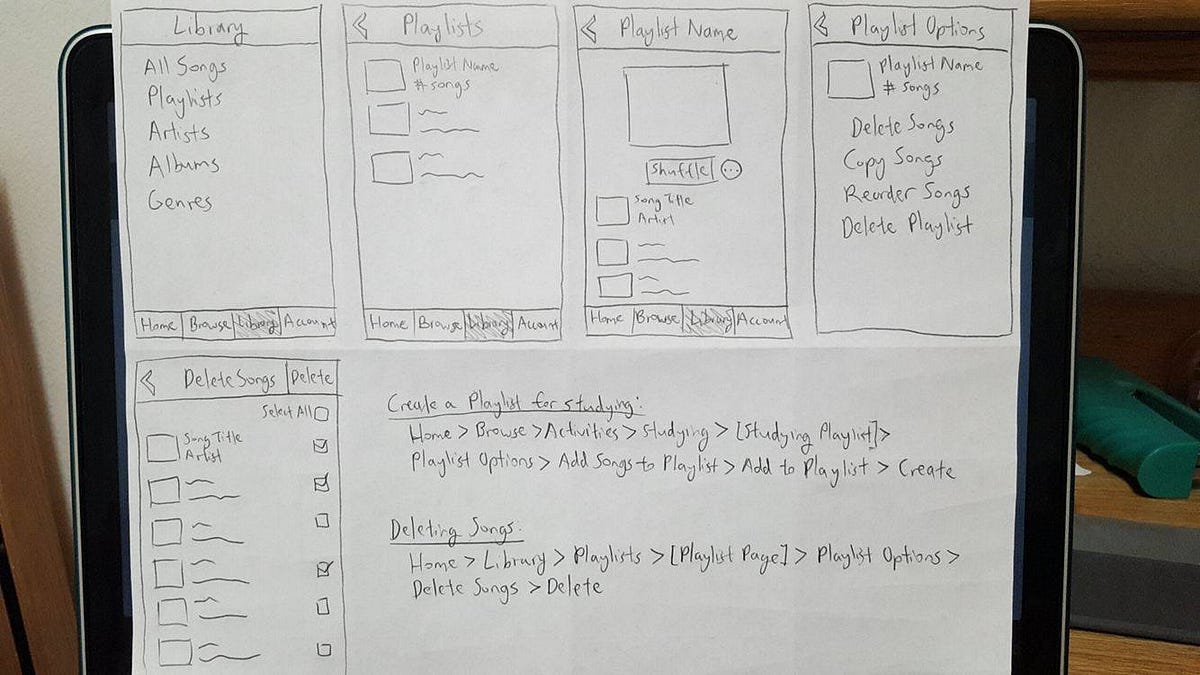 Library
All Songs
Playlists
Artists
Albums
Genres
Home Browse Library Account
Playlists
Playlist Name
# songs
Home Browse Library Account
Playlist Name
Shuffle
Song Title
Artist
Home Browse Library Account
Playlist Options
Playlist Name
# songs
Delete Songs
Copy Songs
Reorder Songs
Delete Playlist
Delete Songs Delete
Select All
Song Title
Artist
Create a Playlist for studying:
Home > Browse > Activities > Studying > [Studying Playlist] >
Playlist Options > Add Songs to Playlist > Add to Playlist > Create
Deleting Songs:
Home > Library > Playlists > [Playlist Page] > Playlist Options >
Delete Songs > Delete